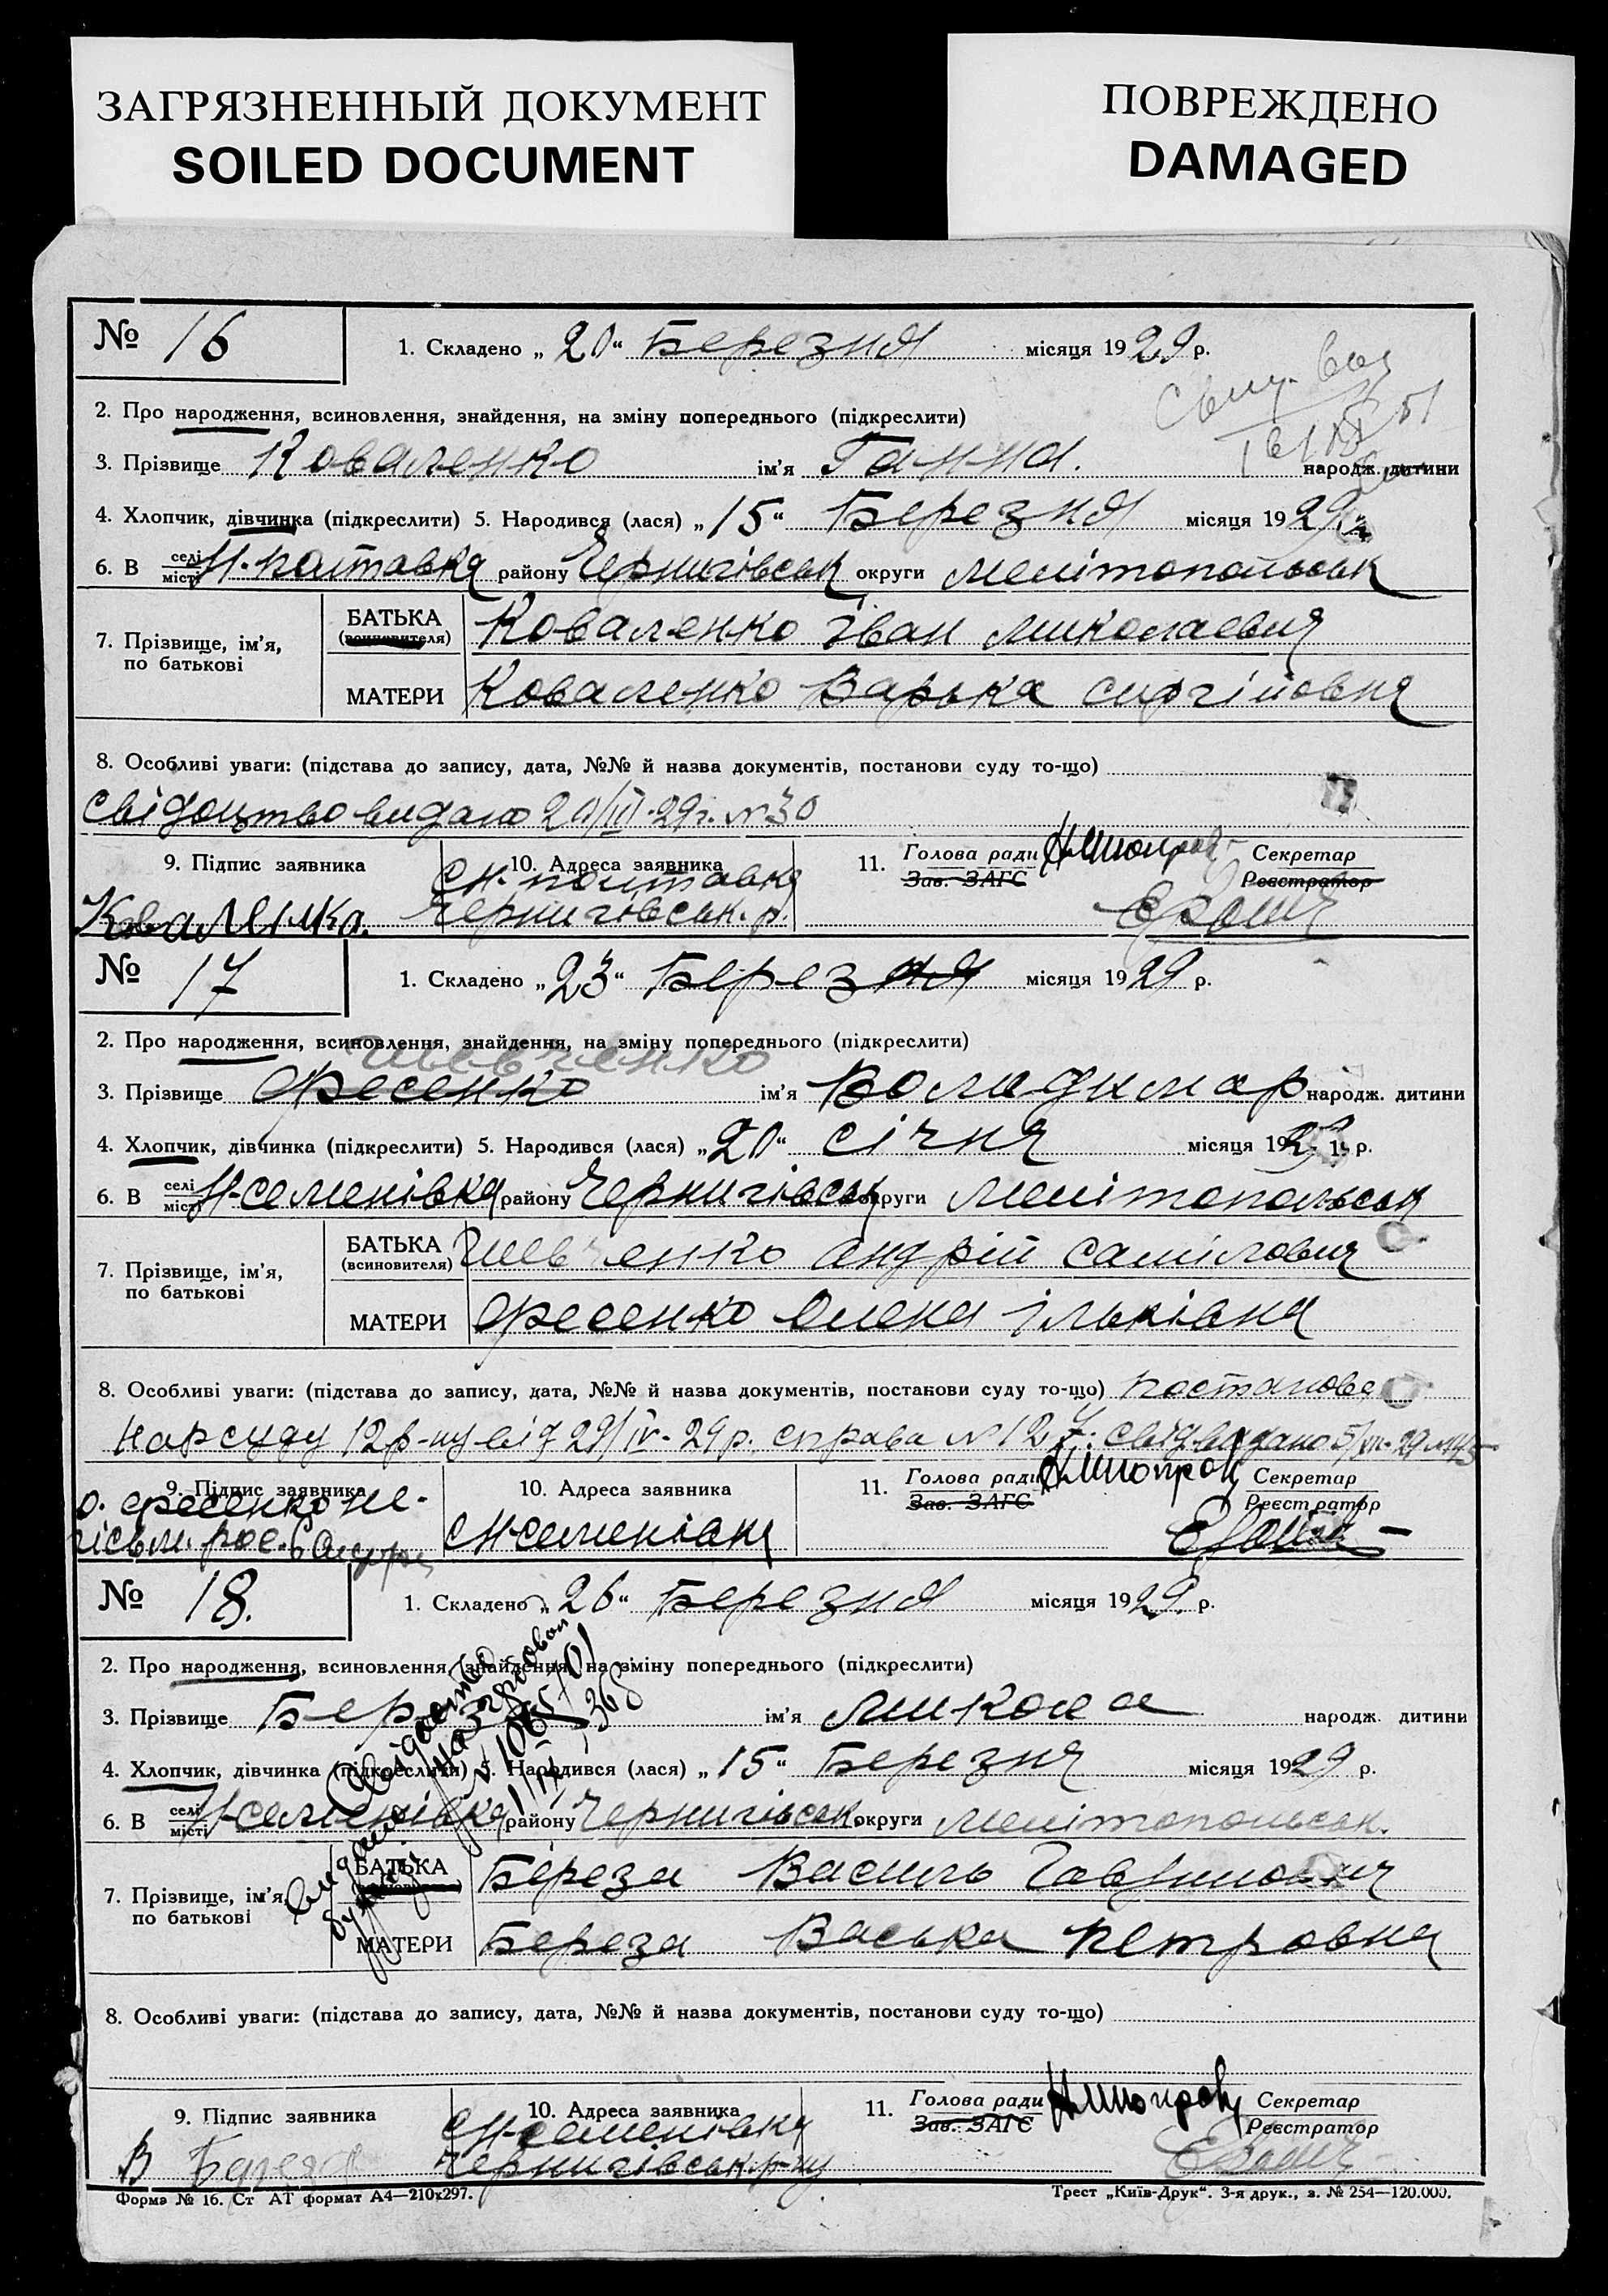 ЗАГРЯЗНЕННЫЙ ДОКУМЕНТ
SOILED DOCUMENT
ПОВРЕЖДЕНО
DAMAGED
№ 16
1. Складено „20“ Березня місяця 1929 р.
2. Про народження, всиновлення, знайдення, на зміну попереднього (підкреслити)
3. Прізвище Коваленко ім'я Ганна. народж. дитини
4. Хлопчик, дівчинка (підкреслити) 5. Народився (лася) „15“ Березня місяця 1929
6. В селі місті Н. Полтавка району Чернигівськ округи Мелітопольськ
7. Прізвище, ім'я, по батькові
БАТЬКА (всиновителя) Коваленко Іван Миколаевич
МАТЕРИ Коваленко Варька Сиргійовна
8. Особливі уваги: (підстава до запису, дата, №№ й назва документів, постанови суду то-що)
Свідоцтво видано 20/III-29г. №30
9. Підпис заявника
10. Адреса заявника
11. Голова ради
Секретар
Зав. ЗАГС
Реєстратор
с Н. Полтавка
Чернигівськ. р.
№ 17
1. Складено „23“ Березня місяця 1929 р.
2. Про народження, всиновлення, знайдення, на зміну попереднього (підкреслити)
Шевченко
3. Прізвище Фесенко ім'я Володимар народж. дитини
4. Хлопчик, дівчинка (підкреслити) 5. Народився (лася) „20“ січня місяця 1929 р.
6. В селі місті Н-Семенівка району Чернигівськ округи Мелітопольськ
7. Прізвище, ім'я, по батькові
БАТЬКА (всиновителя) Шевченко Андрій Самілович
МАТЕРИ Фесенко Олена Ільківна
8. Особливі уваги: (підстава до запису, дата, №№ й назва документів, постанови суду то-що) Постанова
Нарсуду 12 р-ну від 29/IV-29 р. справа №
9. Підпис заявника
10. Адреса заявника
11. Голова ради
Секретар
Зав. ЗАГС
Реєстратор
о. Фесенко не-
письм. рос.
с Н-Семенівка
№ 18.
1. Складено „26“ Березня місяця 1929 р.
2. Про народження, всиновлення, знайдення, на зміну попереднього (підкреслити)
3. Прізвище Береза ім'я Микола народж. дитини
4. Хлопчик, дівчинка (підкреслити) 5. Народився (лася) „15“ Березня місяця 1929 р.
6. В селі місті Н-Семенівка району Чернигівськ. округи Мелітопольськ.
7. Прізвище, ім'я, по батькові
БАТЬКА Береза Василь Гаврилович
МАТЕРИ Береза Васька Петровна
Свідоцтво
видано
8. Особливі уваги: (підстава до запису, дата, №№ й назва документів, постанови суду то-що)
9. Підпис заявника
10. Адреса заявника
11. Голова ради
Секретар
Зав. ЗАГС
Реєстратор
В Береза
с Н-Семенівка
Чернигівськ. р-ну
Форма № 16. Ст АТ формат А4—210x297.
Трест „Київ-Друк“. 3-я друк., з. № 254—120.000.